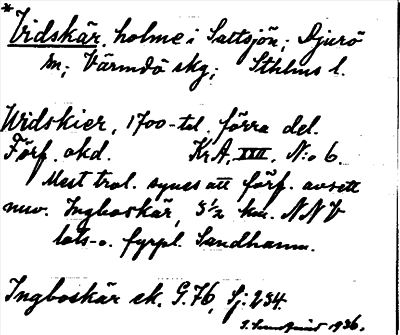 *Vidskär, holme i Saltsjön; Djurö
sn; Värmdö skg; Sthlms l.
Widskier, 1700-tal. förra del.
Förf. okd. KrA, XVII, N:o 6.
Mest trol. synes att förf. avsett
nuv. Ingboskär, 3½ km. NNV
lots-o. fyrpl. Sandhamn.
Ingboskär ek. G.76, Sj: 234.
1936.